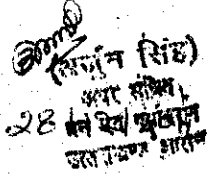 (अर्जुन सिंह)
अपर सचिव,
28 वन एवं
उत्तराखण्ड शासन